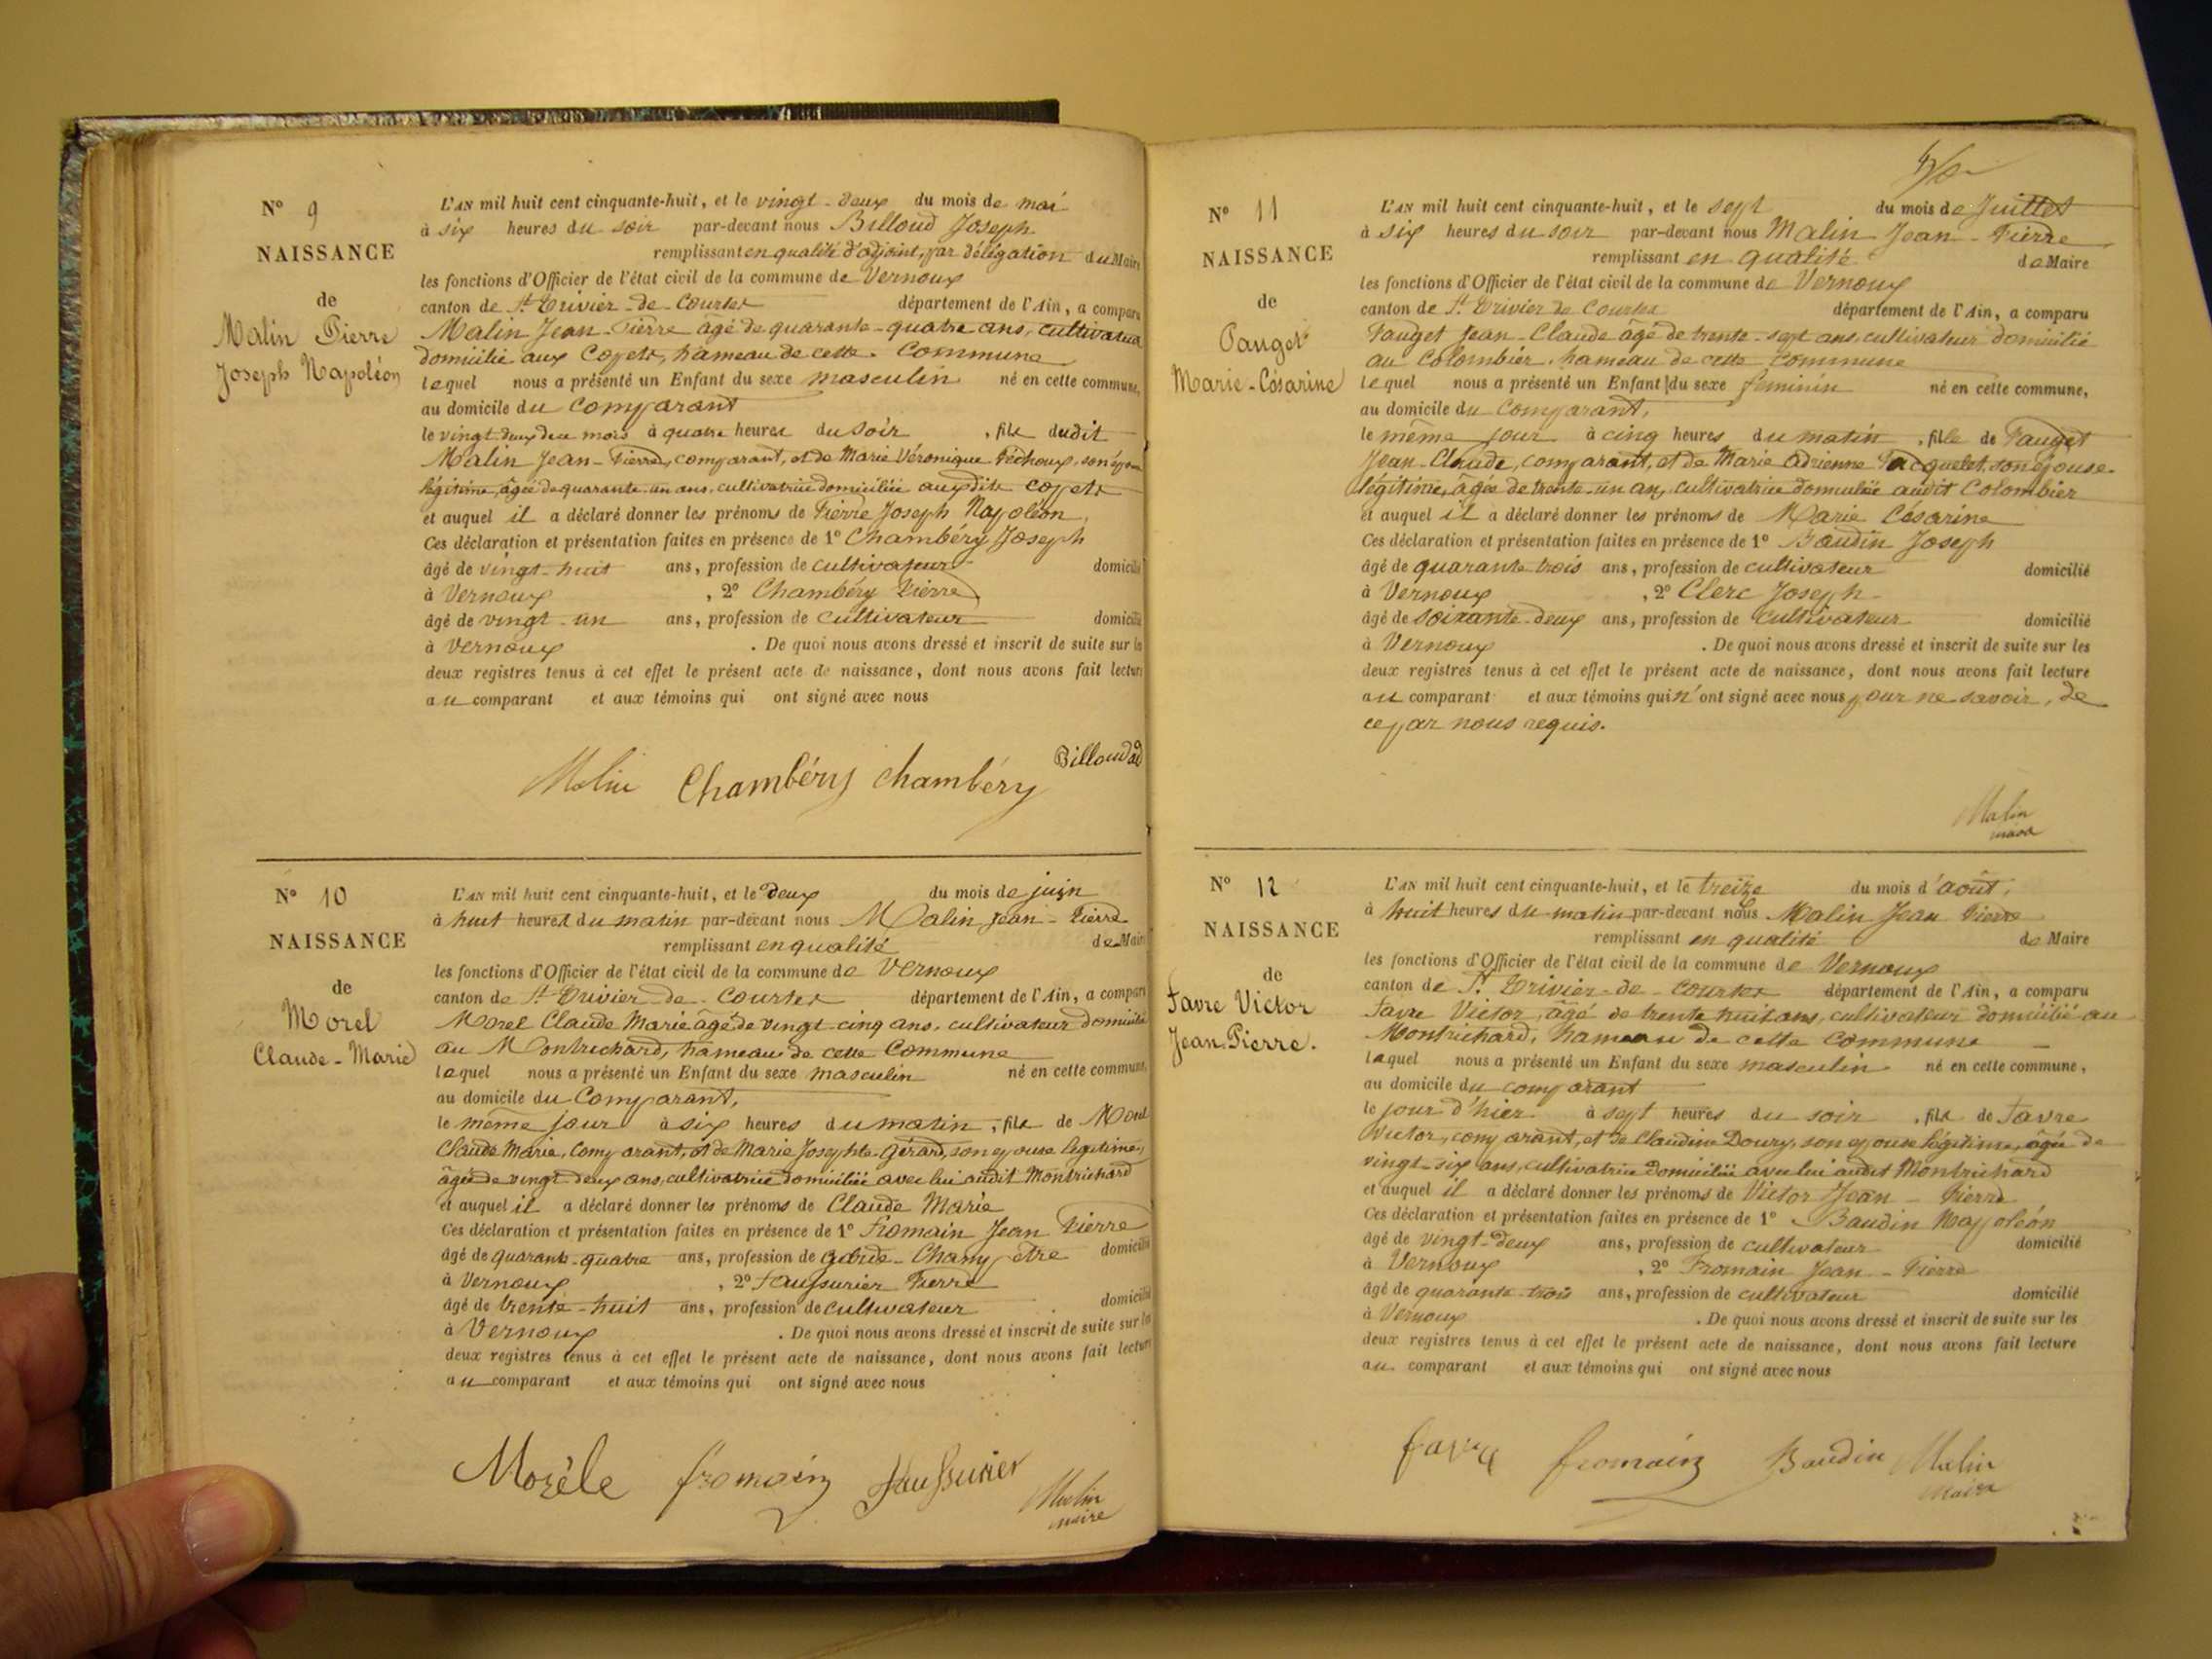 N° 9
NAISSANCE
de
Malin Pierre
Joseph Napoléon
L'AN mil huit cent cinquante-huit, et le vingt-deux du mois de mai
à six heures du soir par-devant nous Billoud Joseph
remplissant en qualité d'adjoint, par délégation du Maire
les fonctions d'Officier de l'état civil de la commune de Vernoux
canton de St Trivier-de-Courtes département de l'Ain, a comparu
Malin Jean-Pierre âgé de quarante-quatre ans, cultivateur
domicilié aux Coyets, hameau de cette Commune
lequel nous a présenté un Enfant du sexe masculin né en cette commune,
au domicile du Comparant
le vingt deux du mois à quatre heures du soir, fils dudit
Malin Jean-Pierre, comparant, et de Marie Véronique Péchoux, son épouse
légitime, âgée de quarante-un ans, cultivatrice domiciliée auxdits Coyets
et auquel il a déclaré donner les prénoms de Pierre Joseph Napoléon,
Ces déclaration et présentation faites en présence de 1° Chambéry Joseph
âgé de vingt-huit ans, profession de cultivateur domicilié
à Vernoux, 2° Chambéry Pierre
âgé de vingt-un ans, profession de cultivateur domicilié
à Vernoux. De quoi nous avons dressé et inscrit de suite sur les
deux registres tenus à cet effet le présent acte de naissance, dont nous avons fait lecture
au comparant et aux témoins qui ont signé avec nous
Malin Chambéry chambéry Billoud ad
N° 10
NAISSANCE
de
Morel
Claude-Marie
L'AN mil huit cent cinquante-huit, et le deux du mois de juin
à huit heures du matin par-devant nous Malin Jean-Pierre
remplissant en qualité de Maire
les fonctions d'Officier de l'état civil de la commune de Vernoux
canton de St Trivier-de-Courtes département de l'Ain, a comparu
Morel Claude Marie âgé de vingt-cinq ans, cultivateur domicilié
au Montrichard, hameau de cette Commune
lequel nous a présenté un Enfant du sexe masculin né en cette commune,
au domicile du Comparant,
le même jour à six heures du matin, fils de Morel
Claude Marie, comparant, et de Marie Josephte Gérard, son épouse légitime,
âgée de vingt-deux ans, cultivatrice domiciliée avec lui audit Montrichard
et auquel il a déclaré donner les prénoms de Claude Marie
Ces déclaration et présentation faites en présence de 1° Fromain Jean Pierre
âgé de quarante-quatre ans, profession de garde-Champêtre domicilié
à Vernoux, 2° Faussurier Pierre
âgé de trente-huit ans, profession de cultivateur domicilié
à Vernoux. De quoi nous avons dressé et inscrit de suite sur les
deux registres tenus à cet effet le présent acte de naissance, dont nous avons fait lecture
au comparant et aux témoins qui ont signé avec nous
Morèle fromain Faussurier Malin
maire
N° 11
NAISSANCE
de
Pauget
Marie-Césarine
L'AN mil huit cent cinquante-huit, et le sept du mois de Juillet
à six heures du soir par-devant nous Malin Jean-Pierre
remplissant en qualité de Maire
les fonctions d'Officier de l'état civil de la commune de Vernoux
canton de St Trivier de Courtes département de l'Ain, a comparu
Pauget Jean-Claude âgé de trente-sept ans, cultivateur domicilié
au Colombier, hameau de cette Commune
lequel nous a présenté un Enfant du sexe féminin né en cette commune,
au domicile du Comparant,
le même jour à cinq heures du matin, fille de Pauget
Jean-Claude, comparant, et de Marie Adrienne Jacquelet, son épouse
légitime, âgée de trente-un an, cultivatrice domiciliée audit Colombier
et auquel il a déclaré donner les prénoms de Marie Césarine
Ces déclaration et présentation faites en présence de 1° Baudin Joseph
âgé de quarante-trois ans, profession de cultivateur domicilié
à Vernoux, 2° Clerc Joseph
âgé de soixante-deux ans, profession de cultivateur domicilié
à Vernoux. De quoi nous avons dressé et inscrit de suite sur les
deux registres tenus à cet effet le présent acte de naissance, dont nous avons fait lecture
au comparant et aux témoins qui n'ont signé avec nous pour ne savoir, de
ce par nous requis.
Malin
maire
N° 12
NAISSANCE
de
Favre Victor
Jean-Pierre.
L'AN mil huit cent cinquante-huit, et le treize du mois d'août,
à huit heures du matin par-devant nous Malin Jean Pierre
remplissant en qualité de Maire
les fonctions d'Officier de l'état civil de la commune de Vernoux
canton de St Trivier-de-Courtes département de l'Ain, a comparu
Favre Victor, âgé de trente huit ans, cultivateur domicilié au
Montrichard, hameau de cette Commune
lequel nous a présenté un Enfant du sexe masculin né en cette commune,
au domicile du comparant
le jour d'hier à sept heures du soir, fils de Favre
Victor, comparant, et de Claudine Doury, son épouse légitime, âgée de
vingt-six ans, cultivatrice domiciliée avec lui audit Montrichard
et auquel il a déclaré donner les prénoms de Victor Jean-Pierre
Ces déclaration et présentation faites en présence de 1° Baudin Napoléon
âgé de vingt-deux ans, profession de cultivateur domicilié
à Vernoux, 2° Fromain Jean-Pierre
âgé de quarante-trois ans, profession de cultivateur domicilié
à Vernoux. De quoi nous avons dressé et inscrit de suite sur les
deux registres tenus à cet effet le présent acte de naissance, dont nous avons fait lecture
au comparant et aux témoins qui ont signé avec nous
favre fromain Baudin Malin
Maire